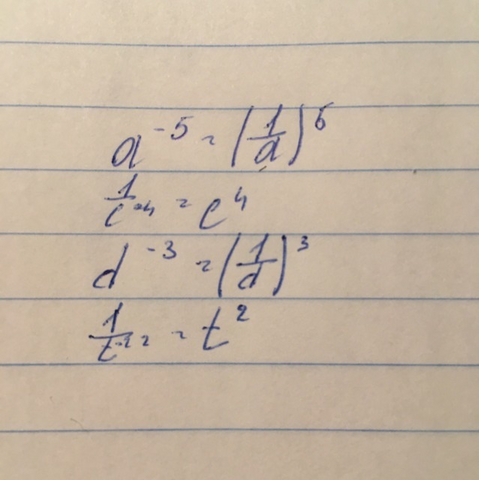 a^-5 = (1/a)^5
1/c^-4 = c^4
d^-3 = (1/d)^3
1/t^-2 = t^2